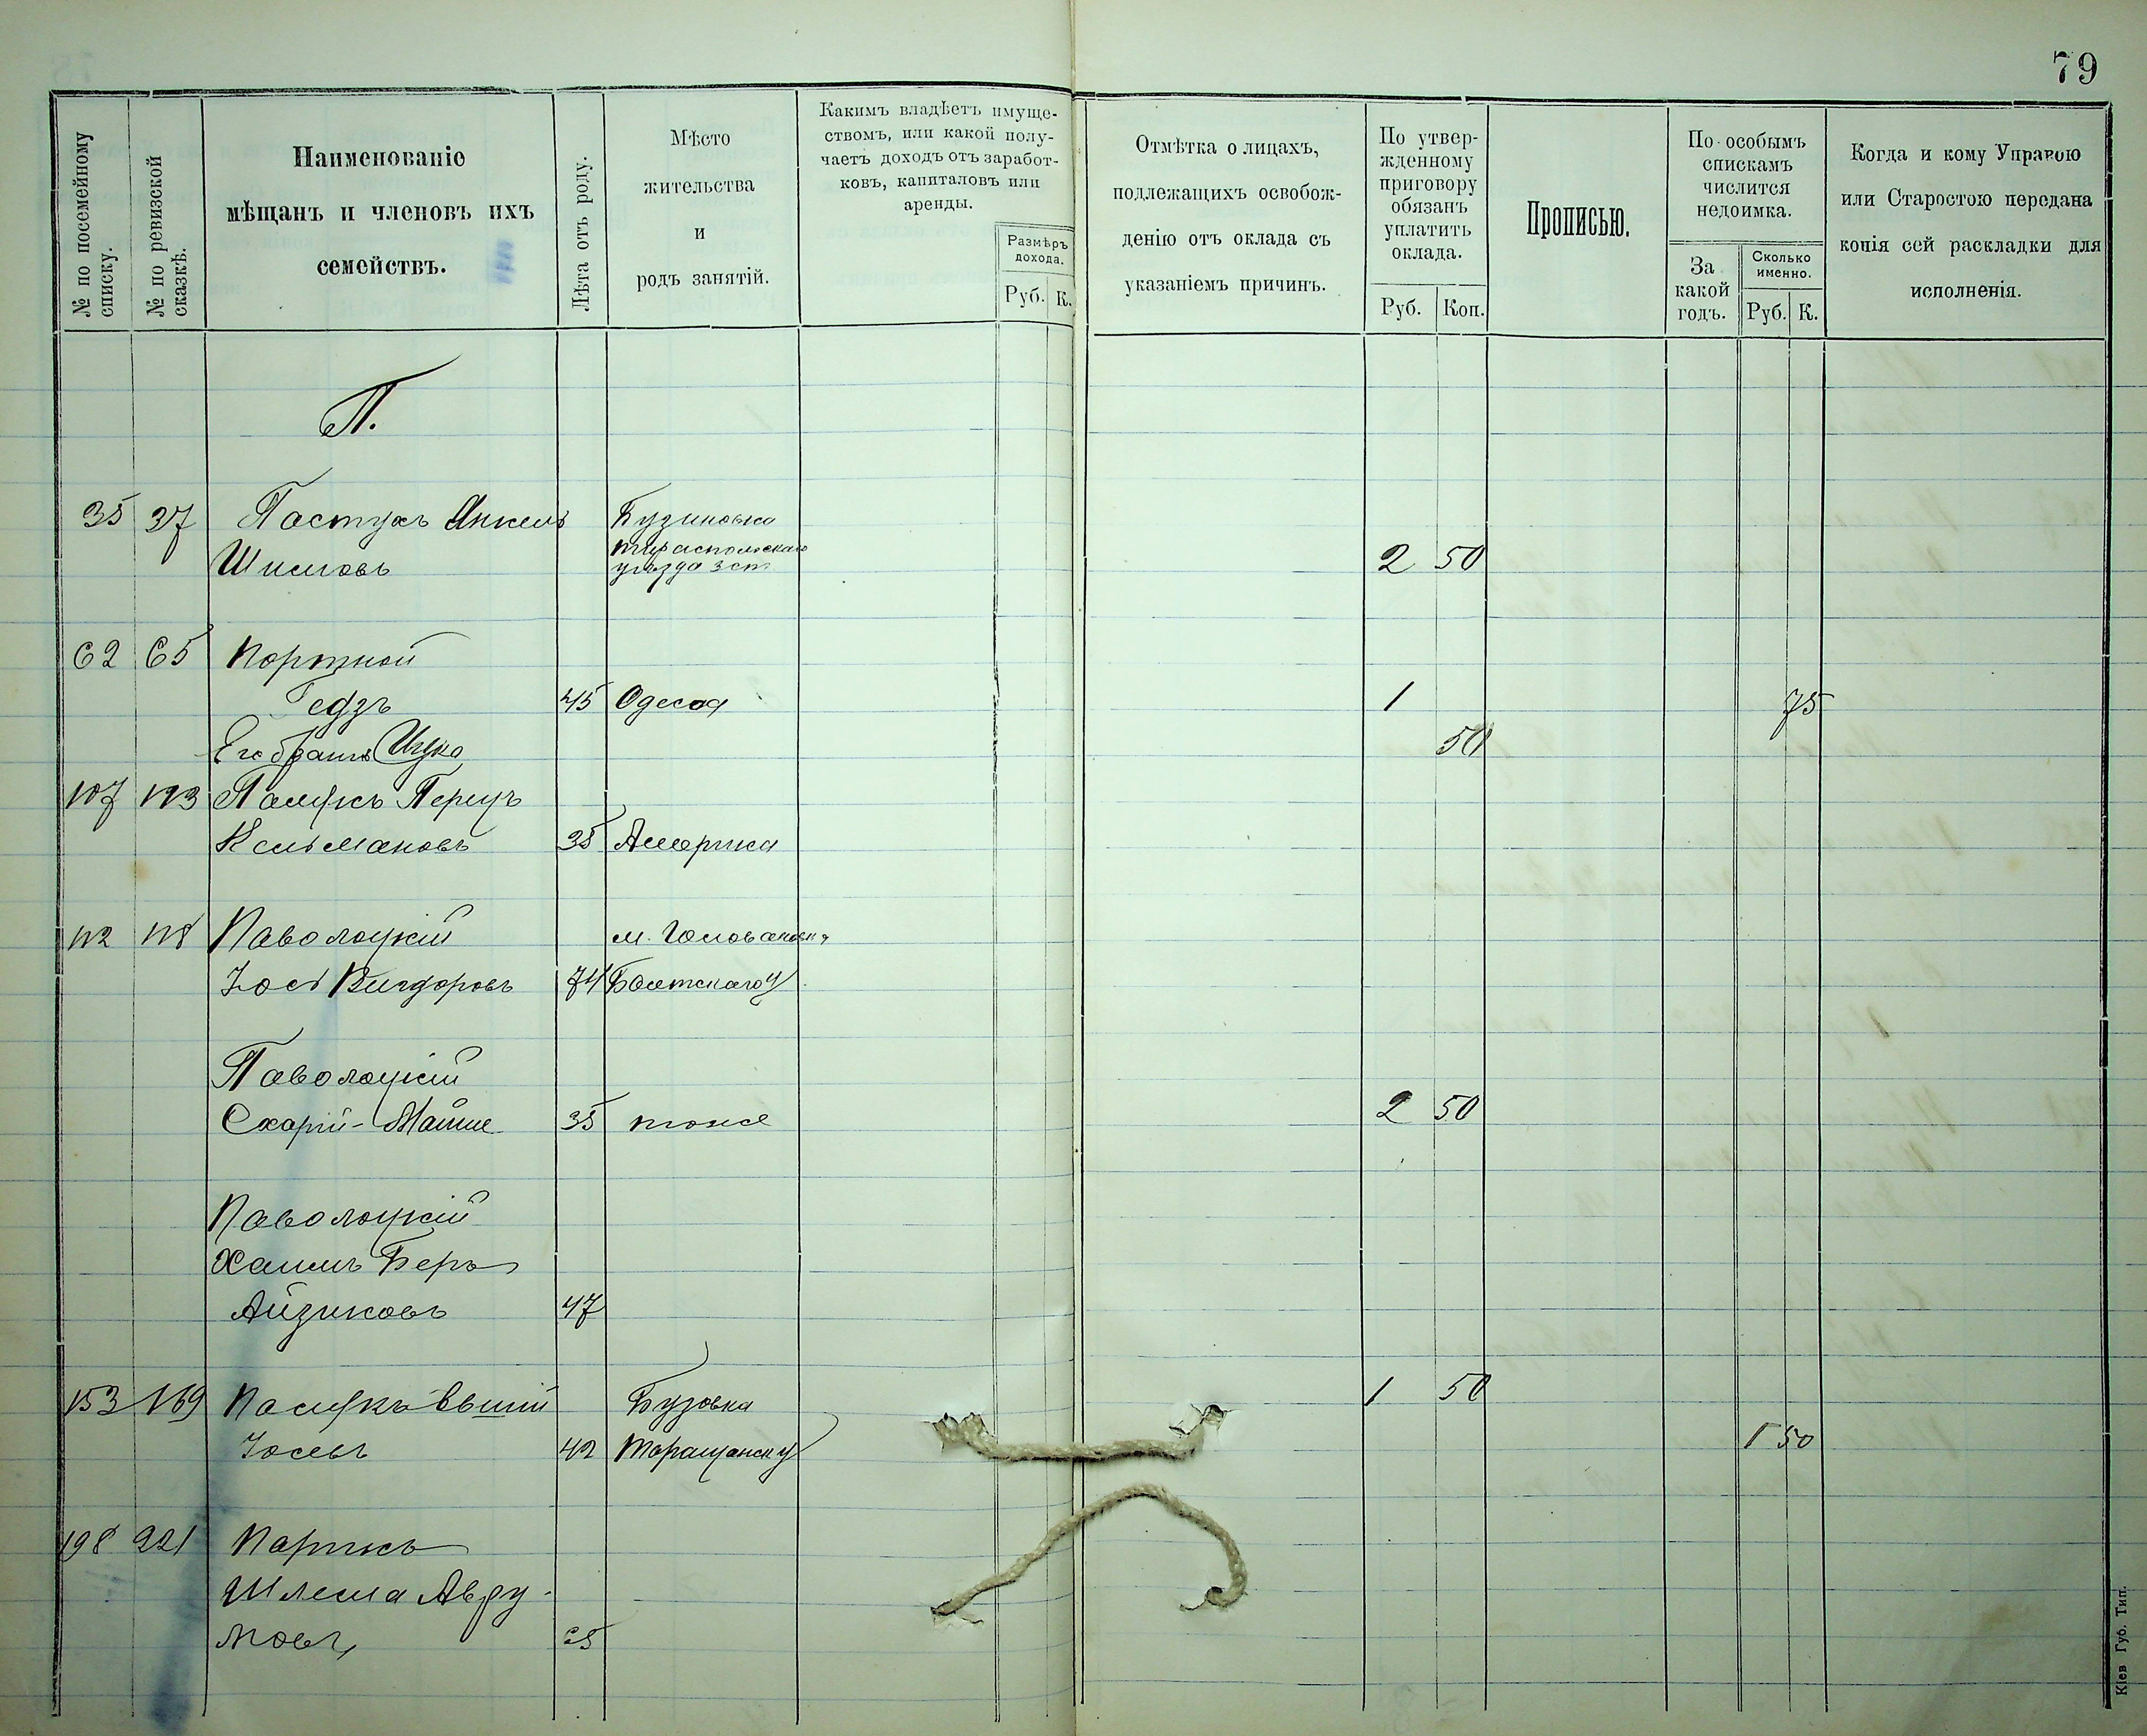 79
№ по посемейному списку.
№ по ревизской сказкѣ.
Наименованіе
мѣщанъ и членовъ ихъ
семействъ.
Лѣта отъ роду.
Мѣсто
жительства
и
родъ занятій.
Какимъ владѣетъ имуще-
ствомъ, или какой полу-
чаетъ доходъ отъ заработ-
ковъ, капиталовъ или
аренды.
Размѣръ
дохода.
Руб. К.
Отмѣтка о лицахъ,
подлежащихъ освобож-
денію отъ оклада съ
указаніемъ причинъ.
По утвер-
жденному
приговору
обязанъ
уплатить
оклада.
Руб. Коп.
Прописью.
По особымъ
спискамъ
числится
недоимка.
За
какой
годъ.
Сколько
именно.
Руб. К.
Когда и кому Управою
или Старостою передана
копія сей раскладки для
исполненія.
П.
35 37 Пастухъ Янкель Бузиновка
Тираспольскаго
Шимовъ уѣзда 2 50
62 65 Портной
45 Одесса 1 75
Его братъ Ицко 50
107 Перецъ
Кельмановъ 35 Америка
112 118 Паволоцкій м.
Іось Вигдоровъ 74 Балтскаго у
Паволоцкій
35 тоже 2 50
Паволоцкій
Хаимъ Беръ
Айзиковъ 47
153 169 Бузовка 1 50
42 Таращанск у 1 50
198 221
Шлема Авру-
мовъ
Кіев Губ. Тип.